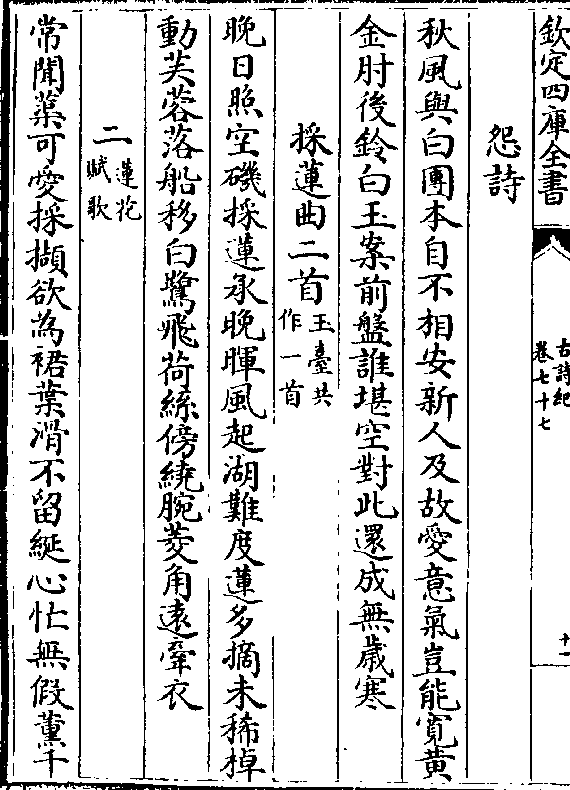 欽定四庫全書
古詩紀
卷七十七
十一
怨詩
秋風與白團本自不相安新人及故愛意氣豈能寛黄
金肘後鈴白玉案前盤誰堪空對此還成無歳寒
採蓮曲二首玉臺共作一首
晚日照空磯採蓮承晚暉風起湖難度蓮多摘未稀棹
動芙蓉落船移白鷺飛荷絲傍繞腕菱角逺牽衣
二蓮花賦歌
常聞蕖可愛採擷欲為裙葉滑不留綖心忙無假薰千